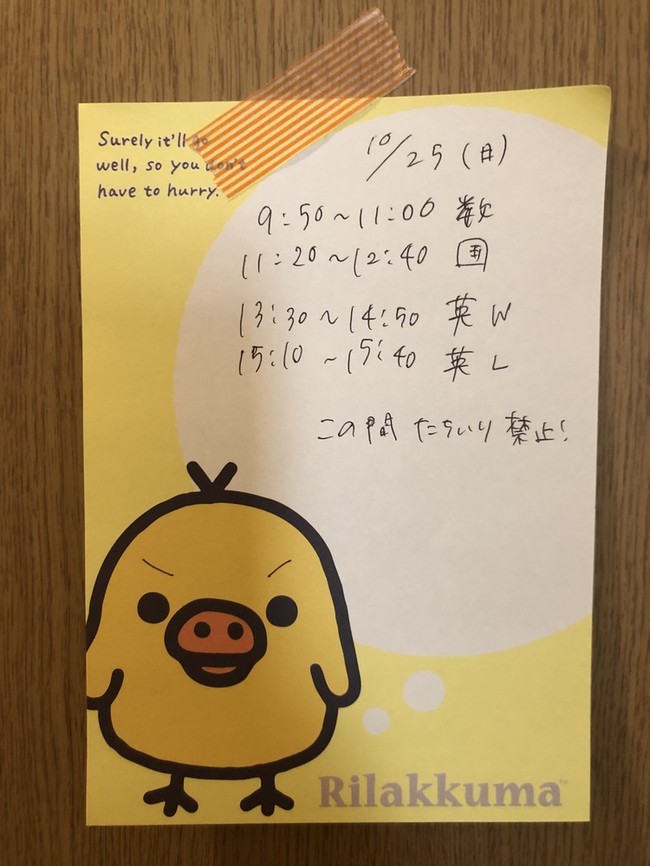 Surely it'll go
well, so you don't
have to hurry.
10/25(日)
9:50~11:00 数
11:20~12:40 国
13:30~14:50 英W
15:10~15:40 英L
この間 たちいり 禁止!
Rilakkuma™